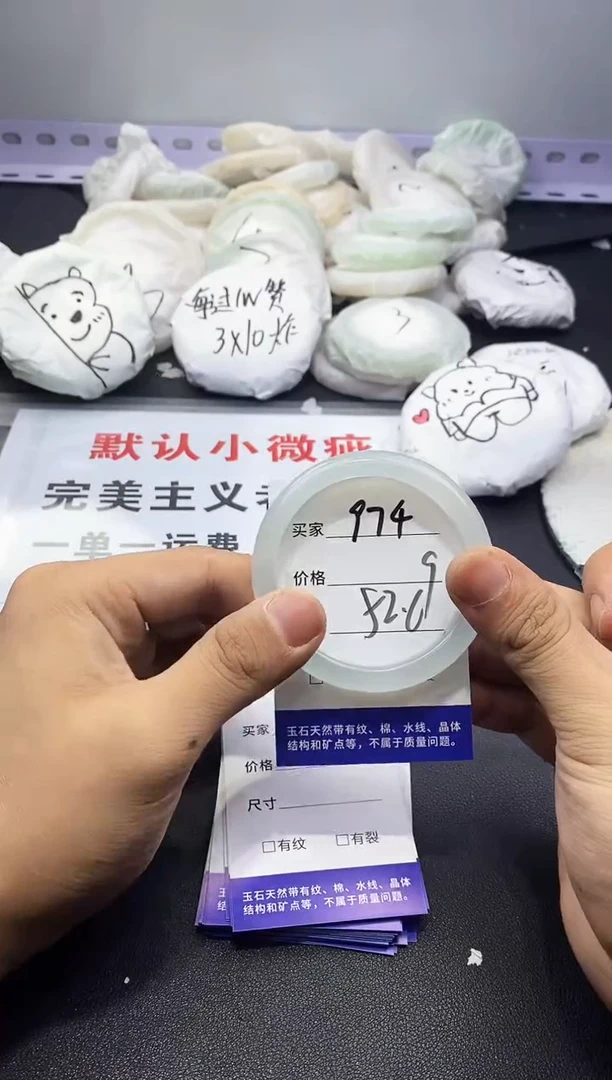 每过1W赞
3X10大炸
3
默认小微疵
完美主义者
一单一运费
买家 974
价格 9
52.6
玉石天然带有纹、棉、水线、晶体
结构和矿点等，不属于质量问题。
买家
价格
尺寸
□有纹 □有裂
玉石天然带有纹、棉、水线、晶体
结构和矿点等，不属于质量问题。